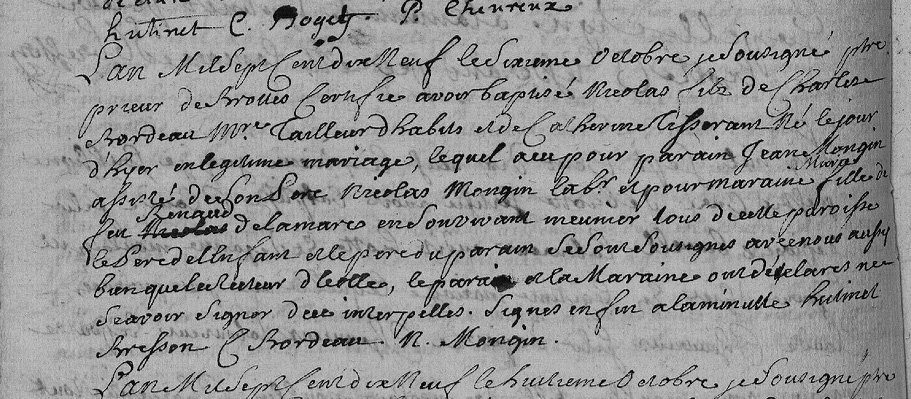 hutinet C. Boget. P. Chevreux
L'an Mil Sept Cent dix Neuf le Sixieme Octobre je Sousigné ptre
prieur de Certifie avoir baptisé Nicolas fils de Charles
Bordeau Mre Tailleur d'habits et de Catherine Tisserant Né le jour
d'hyer en legitime mariage, lequel a eu pour parain Jean Mongin
assisté de son Pere Nicolas Mongin labr et pour maraine Marie fille de
feu Renaud delamare en Son vivant meunier tous de cette paroisse
le Pere de l'Enfant et le pere du parain Se Sont Sousignés avec nous aussy
bien que le Recteur d'Ecolle, le parain et la Maraine ont déclarés ne
Scavoir Signer de ce interpelles. Signés en fin a la minutte hutinet
Bresson C Bordeau. N. Mongin.
L'an Mil Sept Cent dix Neuf le huitieme Octobre je Sousigné ptre